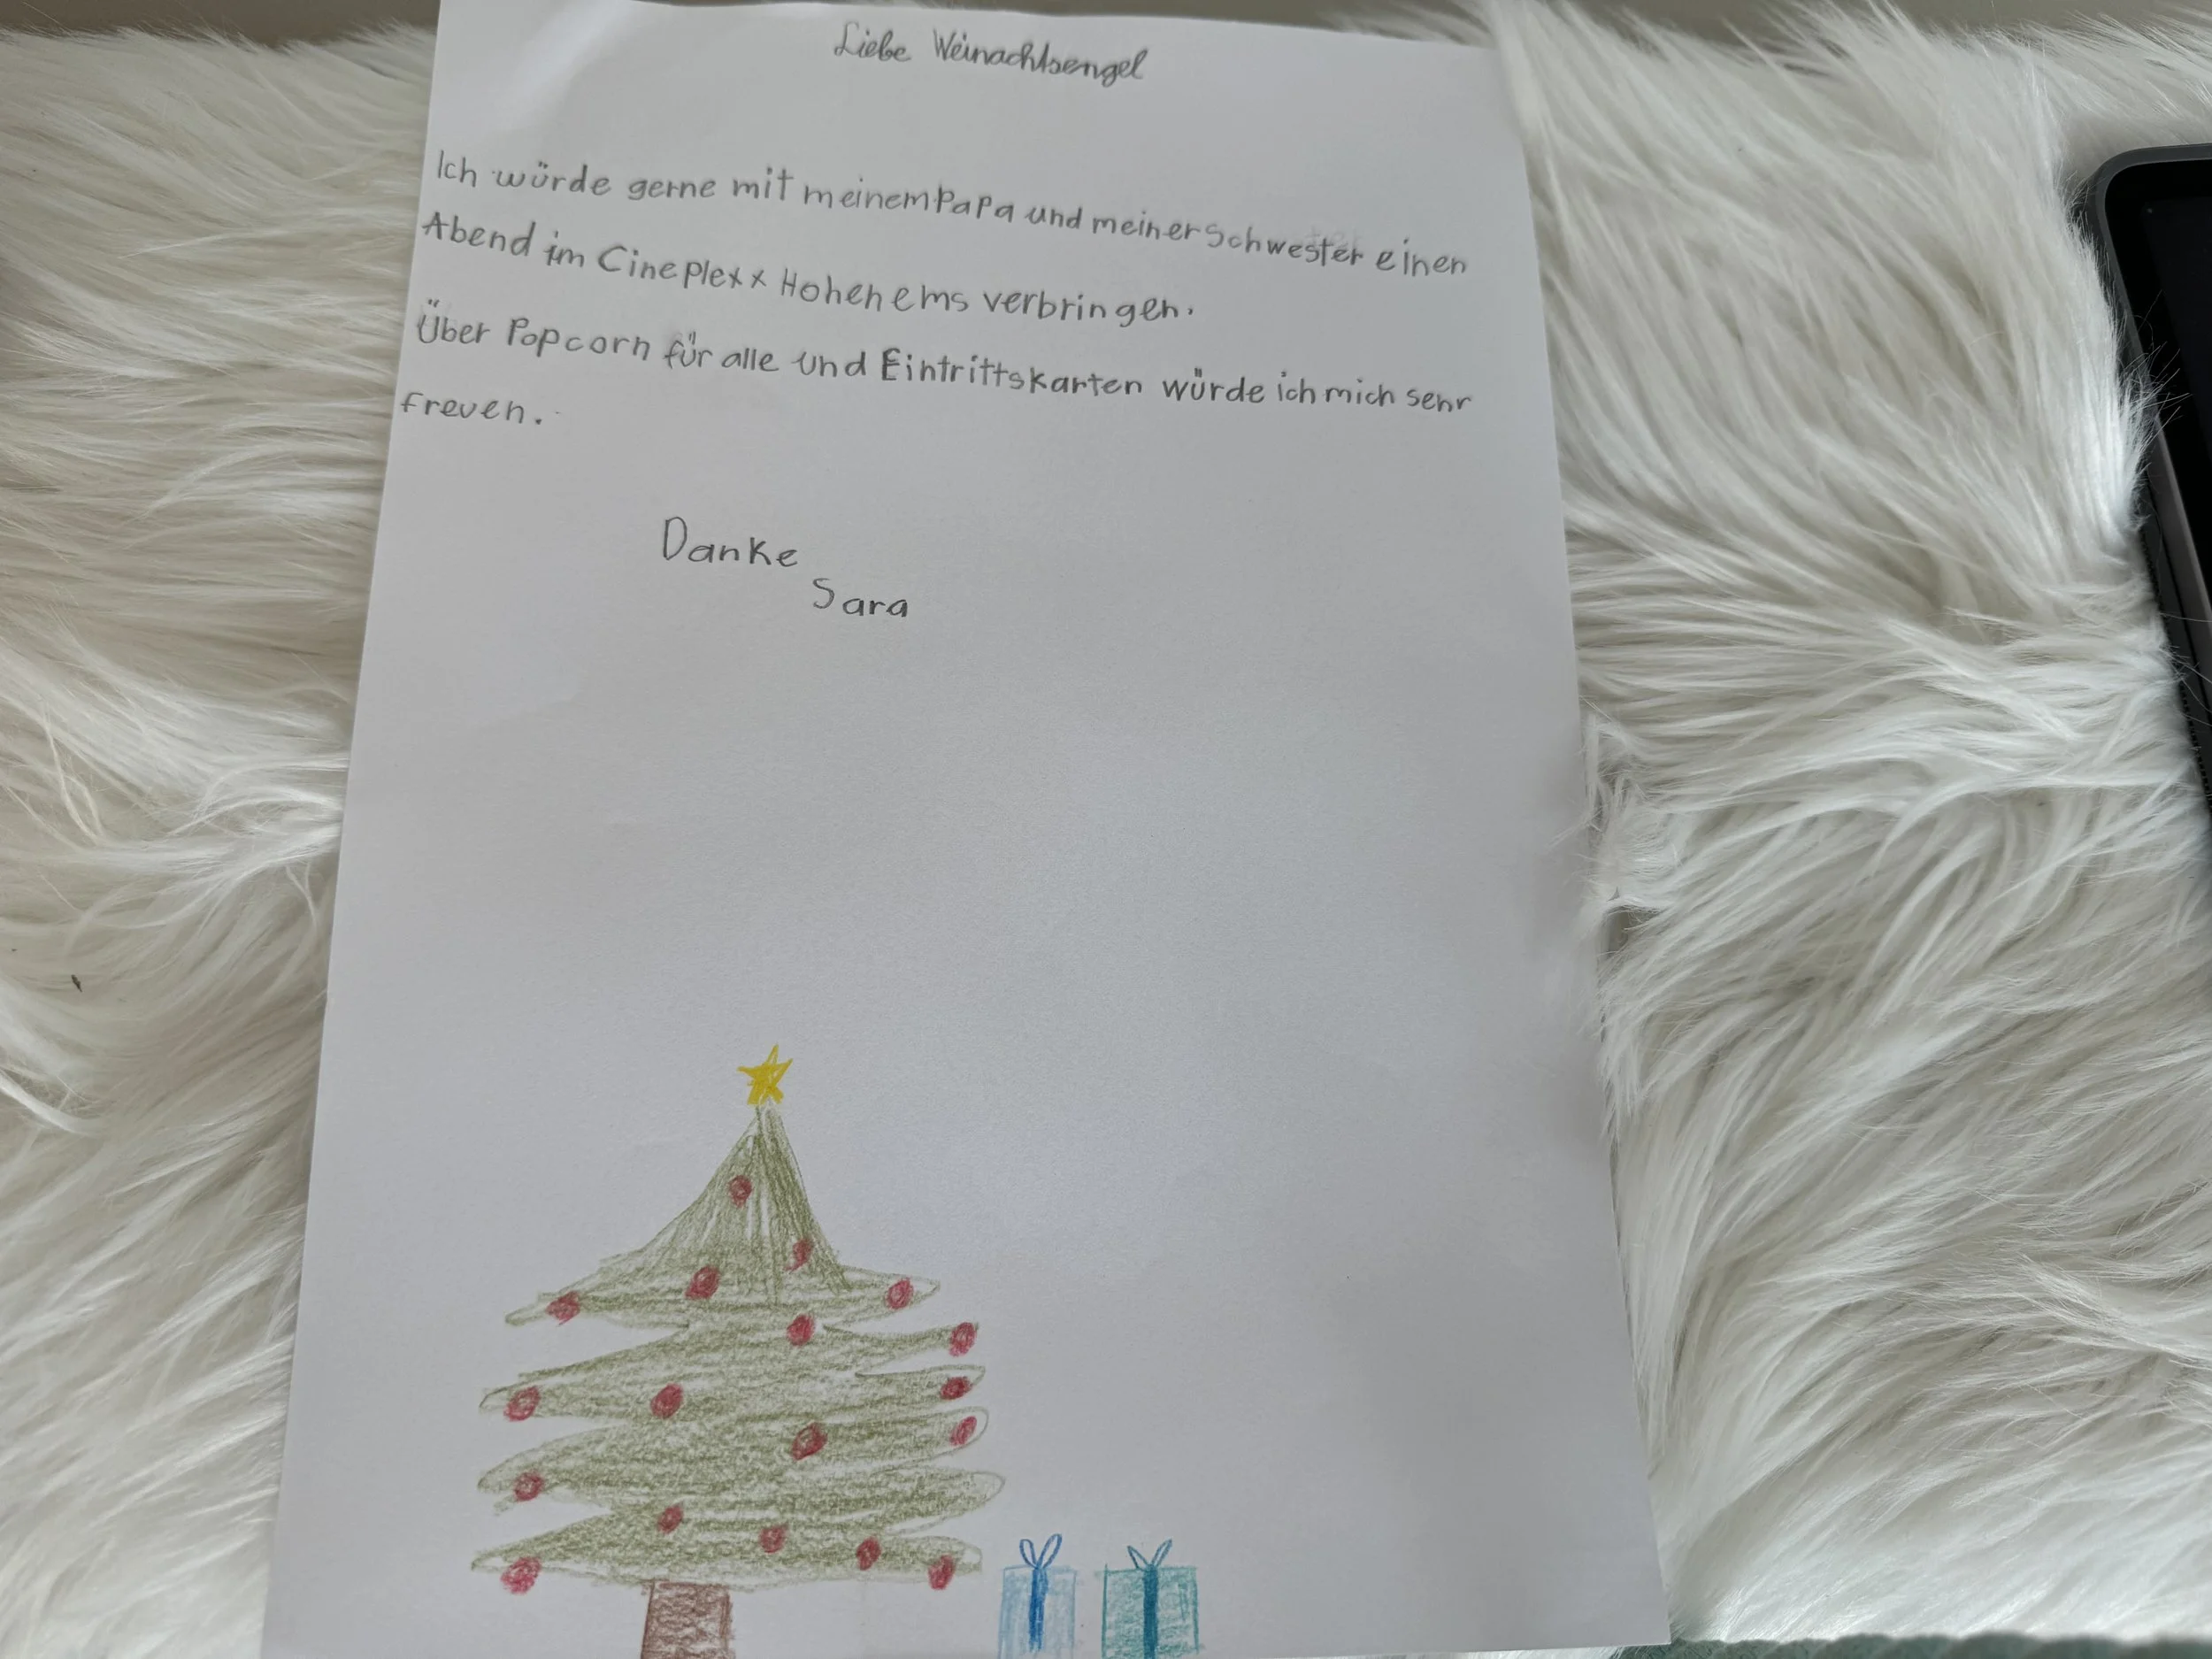 Liebe Weinachtsengel
Ich würde gerne mit meinem Papa und meiner Schwester einen
Abend im Cineplexx Hohenems verbringen.
Über Popcorn für alle und Eintrittskarten würde ich mich sehr
freuen.
Danke
Sara